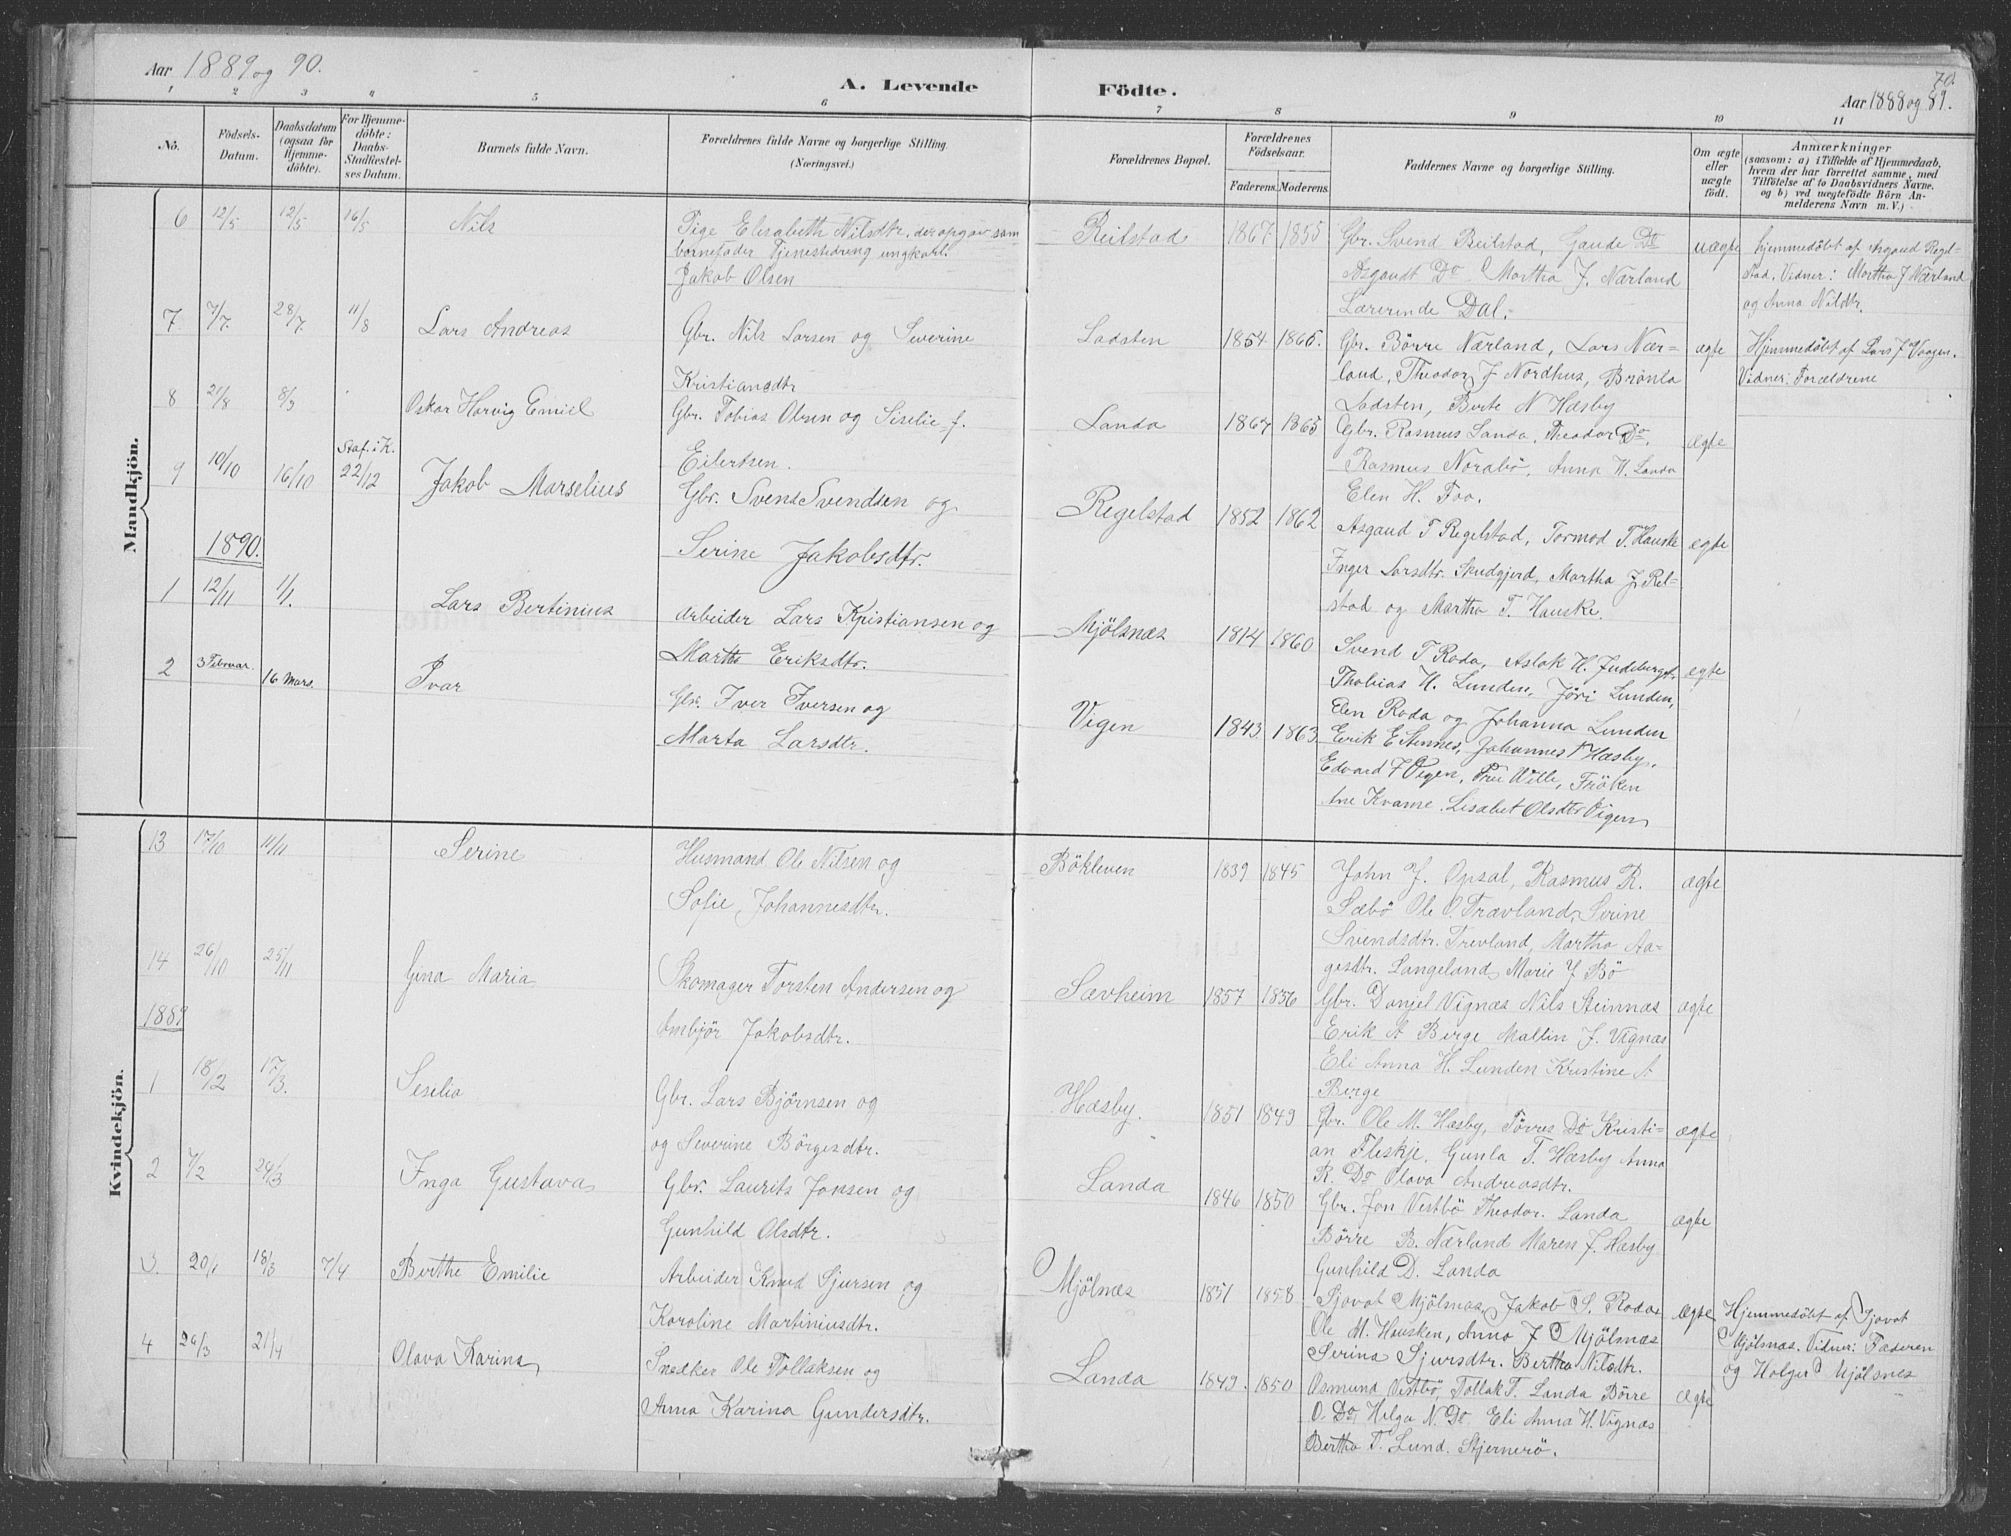 Aar 1889 og 90.
A. Levende Födte.
70.
Aar 1888 og 89.
1 2 3 4 5 6 7 8 9 10 11
No.
Födsels-Datum.
Daabsdatum (ogsaa for Hjemmedöbte).
For Hjemmedöbte: Daabs-Stadfæstelses Datum.
Barnets fulde Navn.
Forældrenes fulde Navne og borgerlige Stilling. (Næringsvei.)
Forældrenes Bopæl.
Forældrenes Födselsaar.
Faderens. Moderens.
Faddernes Navne og borgerlige Stilling.
Om ægte eller uægte födt.
Anmærkninger
(saasom: a) i Tilfælde af Hjemmedaab, hvem der har forrettet samme, med Tilföielse af to Daabsvidners Navne, og b) ved uægtefödte Börn Anmelderens Navn m. V.)
Mandkjön.
6 12/5 12/5 16/5 Nils
Pige Elisabeth Nilsdtr. der opgav som
barnefader Tjenestedreng ungkarl
Jakob Olsen
Reilstad 1867 1855
Gbr. Svend Reilstad, Gaude Do
Asgaudt Do Martha J. Nærland
Lærerinde Dal.
uægte
hjemmedöbt af Asgaud Regel-
stad, Vidner: Martha J Nærland
og Anna Nilsdtr.
7 7/7. 28/7 11/8 Lars Andreas
Gbr. Nils Larsen og Severine
Kristiansdtr
Ladsten 1854 1865.
Gbr. Börre Nærland, Lars Nær-
land, Theodor J Nordhus, Brönla
Ladsten, Berte N Hæsby
ægte
Hjemmedöbt af Lars J Vaagen.
Vidner: Forældrene
8 21/8 8/9 Oskar Harvig Emiel
Gbr. Tobias Olsen og Siselie f.
Eilertsen.
Landa 1867 1865
Gbr. Rasmus Landa, Theodor Do,
Rasmus Nordbö, Anna H. Landa
Elen H. Foo.
ægte
9 10/10 16/10 Staf. i K. 22/12 Jakob Marselius
Gbr. Svend Svendsen og
Serine Jakobsdtr.
Regelstad 1852 1862
Asgaud T Regelstad, Tormod T. Hauske
Inger Larsdtr. Skudgjerd, Martha J. Rel-
stad og Martha T. Hauske.
ægte
1890.
1 12/11 1/1. Lars Bertinius
Arbeider Lars Kristiansen og
Martha Eriksdtr.
Mjölsnæs 1814 1860
Svend T Roda, Aslak H. Judeberget,
Thobias H. Lunden, Jöri Lunden,
Elen Roda og Johanna Lunden
ægte
2 3 Februar. 16 Mars. Ivar
Gbr. Iver Iversen og
Marta Larsdtr.
Vigen 1843 1863
Erik E Stennes, Johannes T Hæsby,
Edvard J Vigen, Frue Wille, Fröken
Ane Kvame. Lisabet Olsdtr Vigen
Kvindekjön.
13 17/10 11/11 Serine
Husmand Ole Nilsen og
Sofie Johannesdtr.
Bökleven 1839 1845
John J. Opsal, Rasmus R.
Sæbö Ole O. Trævland, Serine
Svendsdtr. Trevland, Martha Aa-
gesdtr. Langeland, Marie J Bö
ægte
14 26/10 25/11 Gina Maria
Skomager Torsten Andersen og
Anbjör Jakobsdtr.
Sævheim 1857 1856
Gbr. Danjel Vignæs Nils Steinnæs
Erik A Berge Maltin J. Vignæs
Eli Anna H. Lunden Kristine A
Berge
ægte
1889
1 18/2 17/3. Seselia
Gbr. Lars Björnsen og
og Severine Börgesdtr.
Hæsby. 1851 1849
Gbr. Ole M. Hæsby, Törres Do Kristi-
an Fleskje, Gunla T. Hæsby Anna
R. Do Olava Andreasdtr.
ægte
2 7/2 24/3 Inga Gustava
Gbr. Laurits Jonsen og
Gunhild Olsdtr.
Landa 1846 1850
Gbr. Jon Vestbö Theodor. Landa
Börre B. Nærland Maren J. Hæsby
Gunhild D. Landa
ægte
3. 20/1 18/3 7/4 Berthe Emilie
Arbeider Knud Sjursen og
Karoline Martiniusdtr.
Mjölnæs 1851 1858
Sjovat Mjölnæs, Jakob S. Roda
Ole M. Hausken, Anna J Mjölnæs
Serina Sjursdtr. Bertha Nilsdtr.
ægte
Hjemmedöbt af Sjovat
Mjölnæs. Vidner: Faderen
og Holger Mjölsnes
4 24/3 21/4 Olava Karina
Snedker Ole Tollaksen og
Anna Karina Gundersdtr.
Landa 1849. 1850
Osmund Vestbö, Tollak T. Landa Börre
O. Do, Helga N. Do. Eli Anna H. Vignæs
Bertha T. Lund. Stjernerö.
ægte